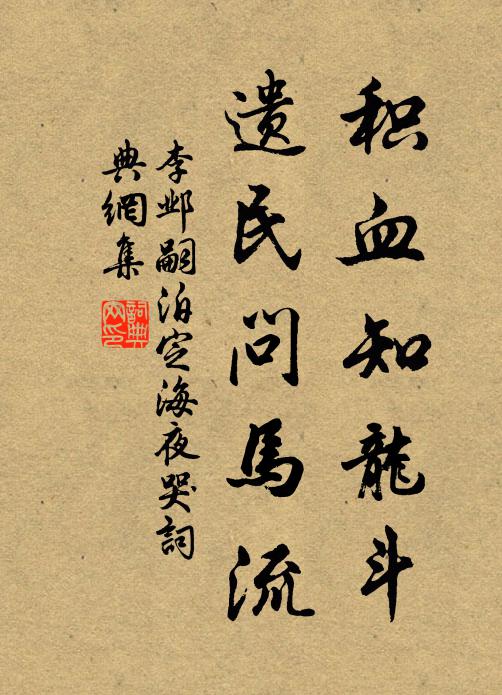 积血知龍斗
遺民問馬流
李邺嗣泊定海夜哭詞
典網集
詞典網印